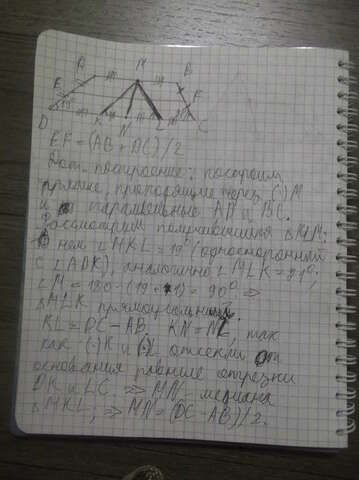 A M B
E F
D K N L C
EF = (AB + DC)/2
Доп. построение: построим
прямые, проходящие через (·) M
и параллельные AD и BC.
Рассмотрим получившийся △ MLK:
В нем ∠MKL = 19° (односторонний
с ∠ADK), аналогично ∠MLK = 71°,
∠M = 180 - (19 + 71) = 90° ⇒
△ MLK прямоугольный.
KL = DC - AB, KN = NL, так
как (·) K и (·) L отсекли от
основания равные отрезки
DK и LC, ⇒ MN - медиана
△ MKL; ⇒ MN = (DC - AB)/2.